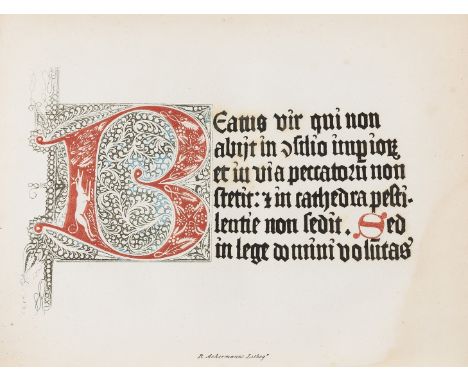 Beatus vir qui non
abijt in ↄsilio impioꝝ
et in via peccatoꝝ non
stetit: ⁊ in cathedra pesti-
lentie non sedit. Sed
in lege domini volūtas
R. Ackermanns Lithogʸ.